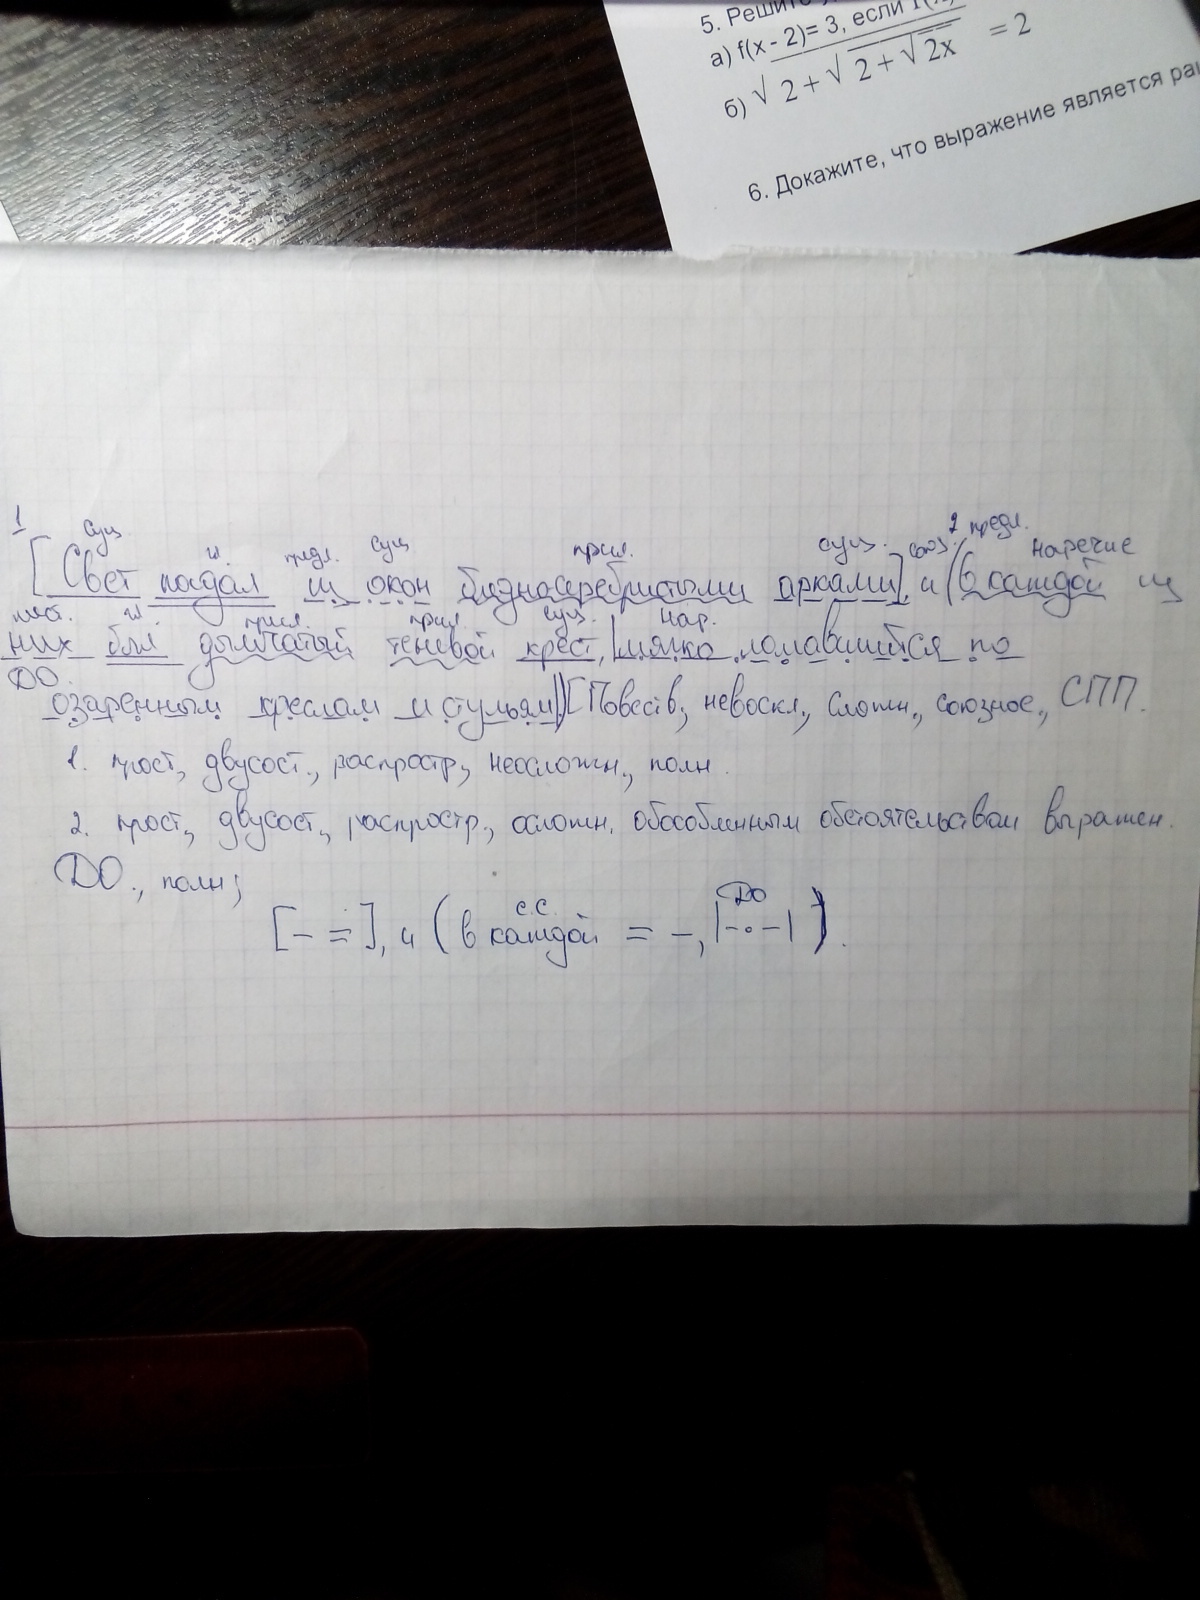 5. Решите
а) f(x - 2)= 3, если f(x)
б) √2 + √2 + √2x = 2
6. Докажите, что выражение является рац
1 сущ. гл. предл. сущ прил. сущ. союз 2 предл. наречие
[Свет падал из окон бледносеребристыми арками], и (в каждой из
мест. гл. прил. прил. сущ. нар.
них был дымчатый теневой крест, |мягко ломавшийся по
ДО.
озаренным креслам и стульям|) [Повеств, невоскл, сложн., союзное, СПП.
1. прост, двусост., распростр, неосложн., полн.
2. прост, двусост., распростр., осложн. обособленным обстоятельством выражен.
ДО., полн;
с.с. ДО
[- =], и ( в каждой = -, |-·-| ).